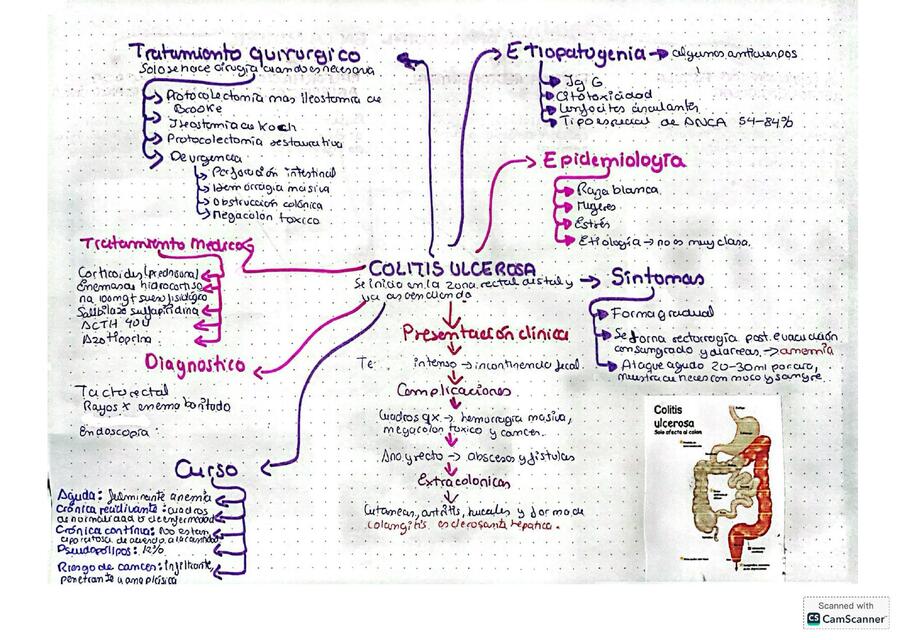 Tratamiento quirurgico
Solo se hace cirugia cuando es necesaria
Protocolectomia mas ileostomia de
Brooke
Ileostomia de Koch
Protocolectomia restaurativa
De urgencia
Perforación intestinal
Hemorragia masiva
Obstruccion colónica
Megacolon toxico
Etiopatogenia → algunos anticuerpos
Ig G
Citotoxicidad
Linfocitos circulantes
Tipo especial de ANCA 54-84%
Epidemiología
Raza blanca
Mujeres
Estrés
Etiología → no es muy clara.
Tratamiento Medico
Corticoides (prednona)
Enemas hidrocortiso
na 100mg + suero fisiológico
Salazopirina
ACTH 40U
Azatioprina
COLITIS ULCEROSA
Se inicia en la zona rectal distal y
va ascendiendo
Sintomas
Forma gradual
Se forma rectorragia post. evacuación
con sangrado y diarreas → anemia
Ataque agudo 20-30 ml por caso,
muestra de heces con moco y sangre.
Presentación clinica
intenso → incontinencia fecal.
Complicaciones
Cuadros qx → hemorragia masiva,
megacolon toxico y cancer.
Ano y recto → abscesos y fistulas
Extracolonicas
Cutaneas, artritis, bucales y forma de
colangitis esclerosante hepatica.
Diagnostico
Tacto rectal
Rayos x enema baritado
Endoscopia:
Curso
Aguda: fulminante anemia
Crónica recidivante: cuadros
de normalidad o de enfermedad
Crónica continua: No estan
de acuerdo a la cantidad
Pseudopolipos: 12%
Riesgo de cancer: Infiltrante,
penetrante u anaplásica
Colitis
ulcerosa
Solo afecta al colon
Scanned with
CS CamScanner